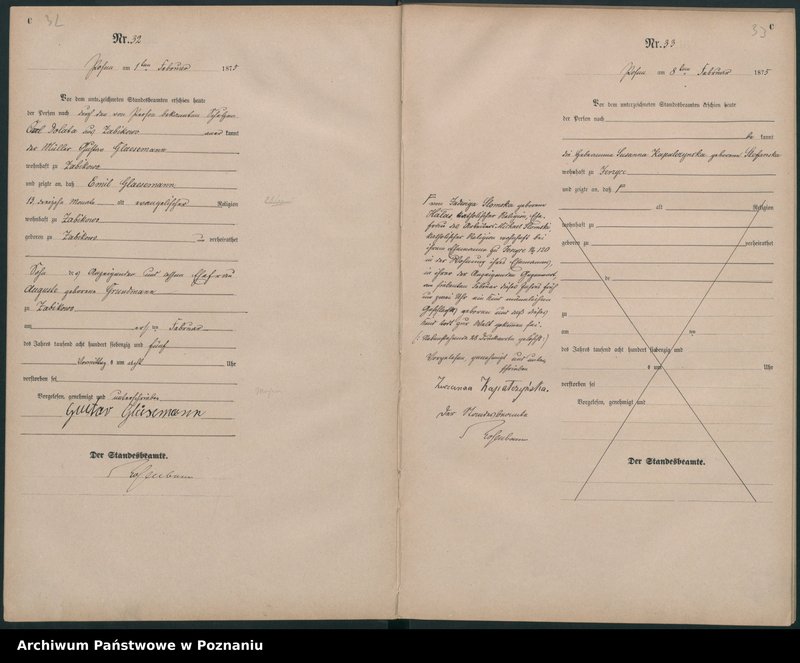 C 32
Nr. 32
Posen am 1ten Februar 1875
Vor dem unterzeichneten Standesbeamten erschien heute
der Person nach durch den von Person bekannten
Carl aus Zabikowo kannt
der Müller Gustav Glaesemann
wohnhaft zu Zabikowo
und zeigte an, daß Emil Glaesemann
13, dreizehn Monate alt evangelischer Religion
wohnhaft zu Zabikowo
geboren zu Zabikowo verheirathet
Sohn des Anzeigenden und dessen Ehefrau
Auguste geborene Grundmann
zu Zabikowo
am ersten Februar
des Jahres tausend acht hundert siebenzig und fünf
Vormittags um acht Uhr
verstorben sei
Vorgelesen, genehmigt und unterschrieben
Gustav Gläsemann
Der Standesbeamte.
33 C
Nr. 33
Posen am 8ten Februar 1875
Vor dem unterzeichneten Standesbeamten erschien heute
der Person nach
be kannt
die Hebeamme Susanna Kapalczynska geborene Stefanska
wohnhaft zu Jerzyce
und zeigte an, daß
alt Religion
wohnhaft zu
geboren zu verheirathet
de
zu
am ten
des Jahres tausend acht hundert siebenzig und
um Uhr
verstorben sei
Vorgelesen, genehmigt und
Der Standesbeamte.
von Jadwiga geborene
katholischer Religion, Ehe-
frau des Arbeiters Michael
katholischer Religion wohnhaft bei
ihrem Ehemanne zu Jerzyce № 120
in der Wohnung ihres Ehemannes,
in ihrer der Anzeigenden Gegenwart,
am siebenten Februar dieses Jahres früh
um zwei Uhr ein Kind männlichen
Geschlechts geboren und daß dieses
Kind todt zur Welt gekommen sei.
(: Nebenstehende 23 Druckworte gelöscht :)
Vorgelesen, genehmigt und unter-
schrieben
Zuzanna
Der Standesbeamte
Archiwum Państwowe w Poznaniu